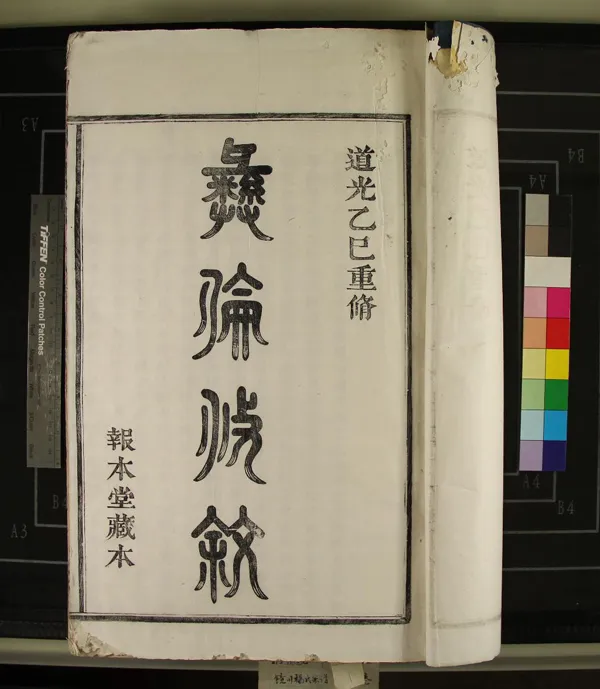 道光乙巳重脩
彝倫攸敘
報本堂藏本
TIFFEN Color Control Patches
A3
B4
A4
B4
A3
A4
B4